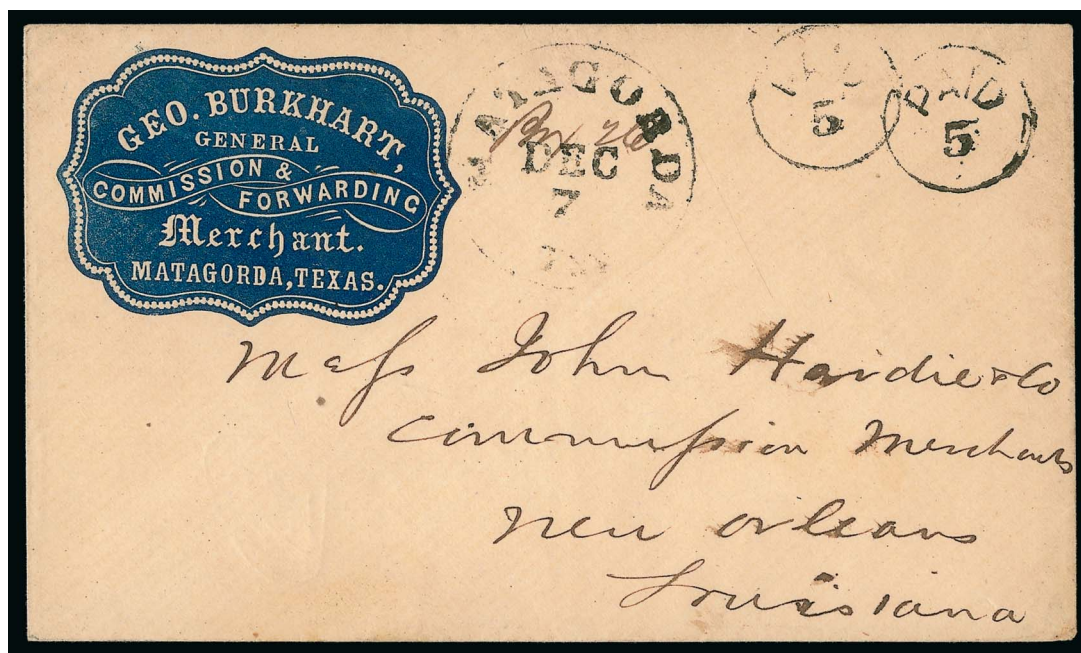 GEO. BURKHART,
GENERAL
COMMISSION &
FORWARDING
Merchant.
MATAGORDA, TEXAS.
MATAGORDA
DEC
7
PAID
5
PAID
5
Mess John Hardie & Co
Commission Merchants
New Orleans
Louisiana